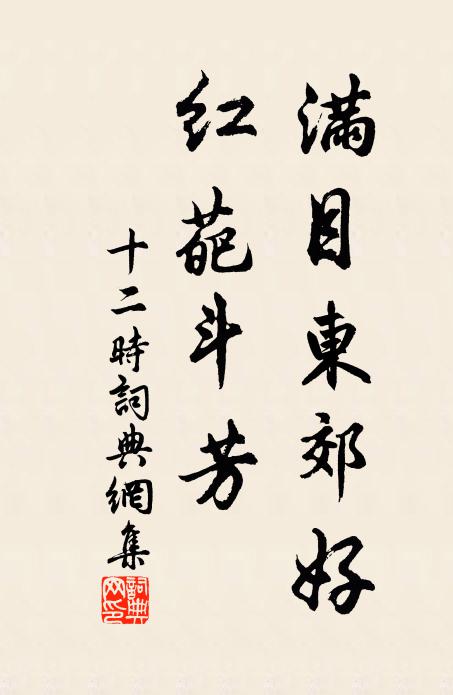 滿目東郊好
紅葩斗芳
十二時詞典網集
詞典網印